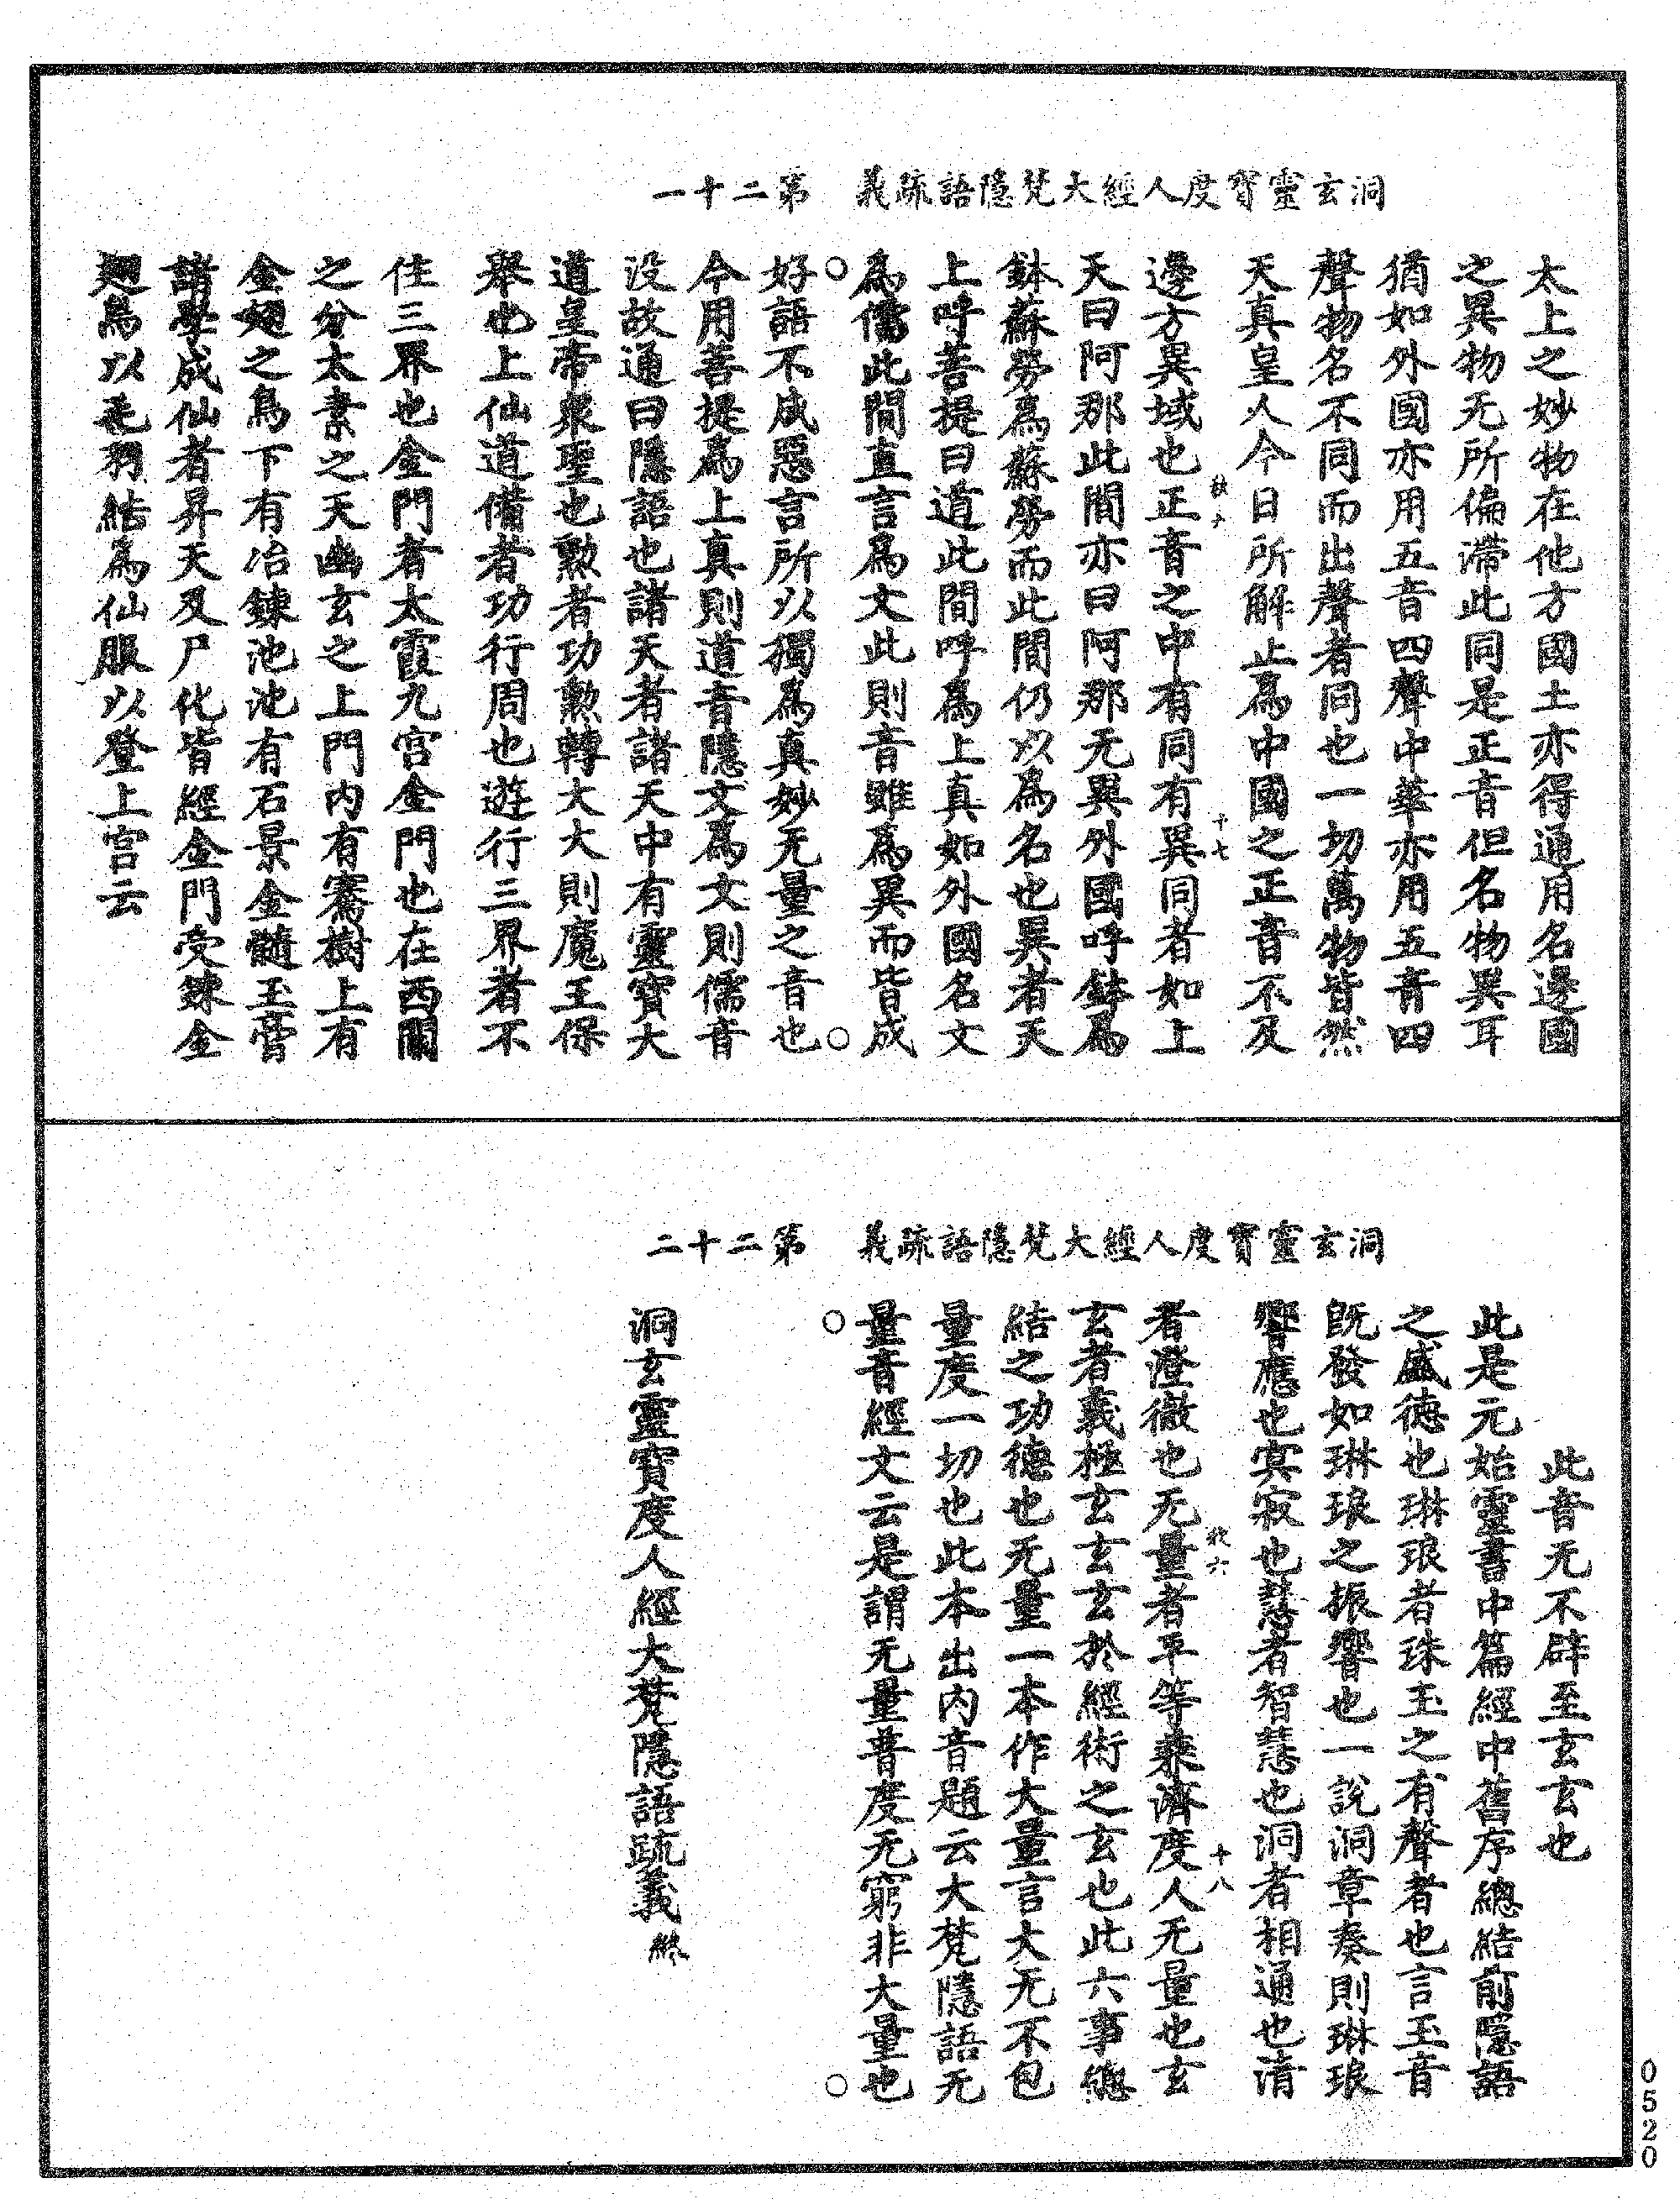 洞玄靈寶度人經大梵隱語疏義　第二十一
太上之妙物在他方國土亦得通用名邊國
之異物无所偏滯此同是正音但名物異耳
猶如外國亦用五音四聲中華亦用五音四
聲物名不同而出聲者同也一切萬物皆然
天真皇人今日所解止爲中國之正音不及
十七
邊方異域也正音之中有同有異同者如上
天曰阿那此間亦曰阿那无異外國呼鉢爲
鉢蘇勞爲蘇勞而此間仍以爲名也異者天
上呼菩提曰道此間呼爲上真如外國名文
爲儒此間直言爲文此則音雖爲異而皆成
○　○
好語不成惡言所以獨爲真妙无量之音也
今用菩提爲上真則道音隱文爲文則儒音
没故通曰隱語也諸天者諸天中有靈寶大
道皇帝衆聖也勲者功勲轉大大則魔王保
舉也上仙道備者功行周也遊行三界者不
住三界也金門者太霞九宫金門也在西關
之分太素之天幽玄之上門內有騫樹上有
金翅之鳥下有冶鍊池池有石景金髓玉膏
諸學成仙者昇天及尸化皆經金門受鍊金
翅鳥以毛羽結爲仙服以登上宫云
洞玄靈寶度人經大梵隱語疏義　第二十二
此音无不辟至玄玄也
此是元始靈書中篇經中舊序總結前隱語
之盛德也琳琅者珠玉之有聲者也言玉音
既發如琳琅之振響也一說洞章奏則琳琅
響應也寞寂也慧者智慧也洞者相通也清
者澄徹也无量者平等乘濟度人无量也玄
十八
玄者義極玄玄玄於經術之玄也此六事總
結之功德也无量一本作大量言大无不包
量度一切也此本出內音題云大梵隱語无
量音經文云是謂无量普度无窮非大量也
○　○
洞玄靈寶度人經大梵隱語疏義終
0520